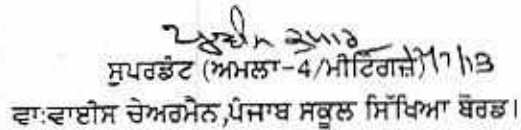 ਸੁਪਰਡੰਟ (ਅਮਲਾ-4/ਮੀਟਿੰਗਜ਼)
ਵਾ:ਵਾਈਸ ਚੇਅਰਮੈਨ,ਪੰਜਾਬ ਸਕੂਲ ਸਿੱਖਿਆ ਬੋਰਡ।